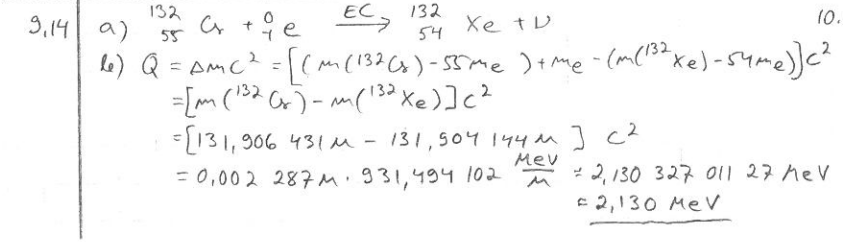 9,14 a) ¹³²₅₅Cs + ⁰₋₁e —EC→ ¹³²₅₄Xe + ν 10.
b) Q = Δmc² = [(m(¹³²Cs) - 55me) + me - (m(¹³²Xe) - 54me)]c²
= [m(¹³²Cs) - m(¹³²Xe)]c²
= [131,906 431 u - 131,904 144 u] c²
= 0,002 287u · 931,494 102 MeV/u = 2,130 327 011 27 MeV
= 2,130 MeV